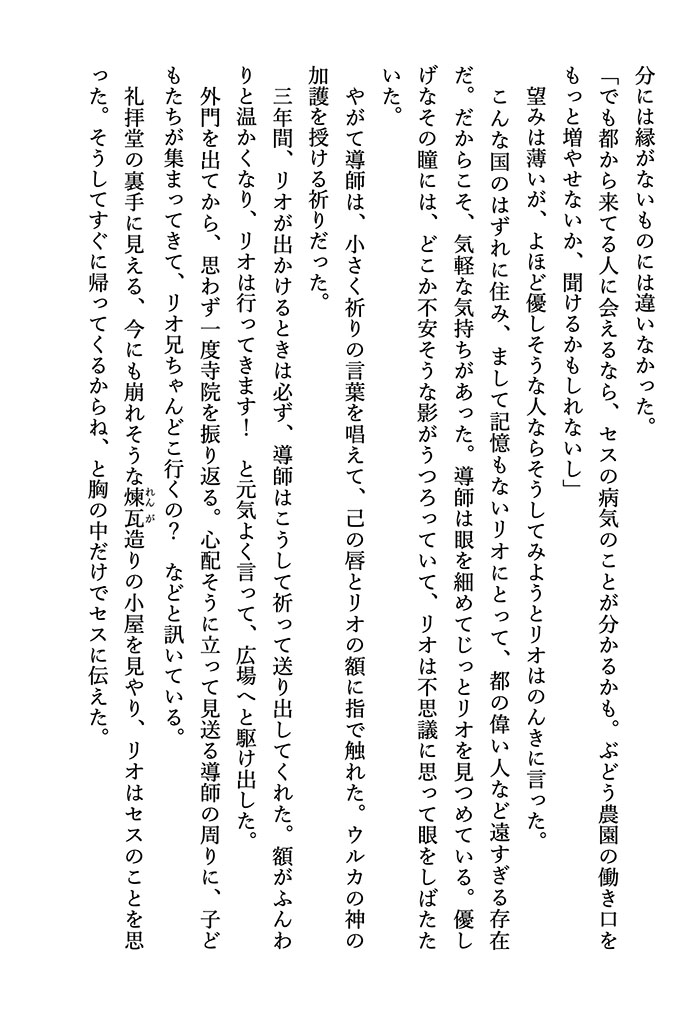 分には縁がないものには違いなかった。
「でも都から来てる人に会えるなら、セスの病気のことが分かるかも。ぶどう農園の働き口を
もっと増やせないか、聞けるかもしれないし」
　望みは薄いが、よほど優しそうな人ならそうしてみようとリオはのんきに言った。
　こんな国のはずれに住み、まして記憶もないリオにとって、都の偉い人など遠すぎる存在
だ。だからこそ、気軽な気持ちがあった。導師は眼を細めてじっとリオを見つめている。優し
げなその瞳には、どこか不安そうな影がうつろっていて、リオは不思議に思って眼をしばたた
いた。
　やがて導師は、小さく祈りの言葉を唱えて、己の唇とリオの額に指で触れた。ウルカの神の
加護を授ける祈りだった。
　三年間、リオが出かけるときは必ず、導師はこうして祈って送り出してくれた。額がふんわ
りと温かくなり、リオは行ってきます！　と元気よく言って、広場へと駆け出した。
　外門を出てから、思わず一度寺院を振り返る。心配そうに立って見送る導師の周りに、子ど
もたちが集まってきて、リオ兄ちゃんどこ行くの？　などと訊いている。
　礼拝堂の裏手に見える、今にも崩れそうな煉瓦造りの小屋を見やり、リオはセスのことを思
れんが
った。そうしてすぐに帰ってくるからね、と胸の中だけでセスに伝えた。